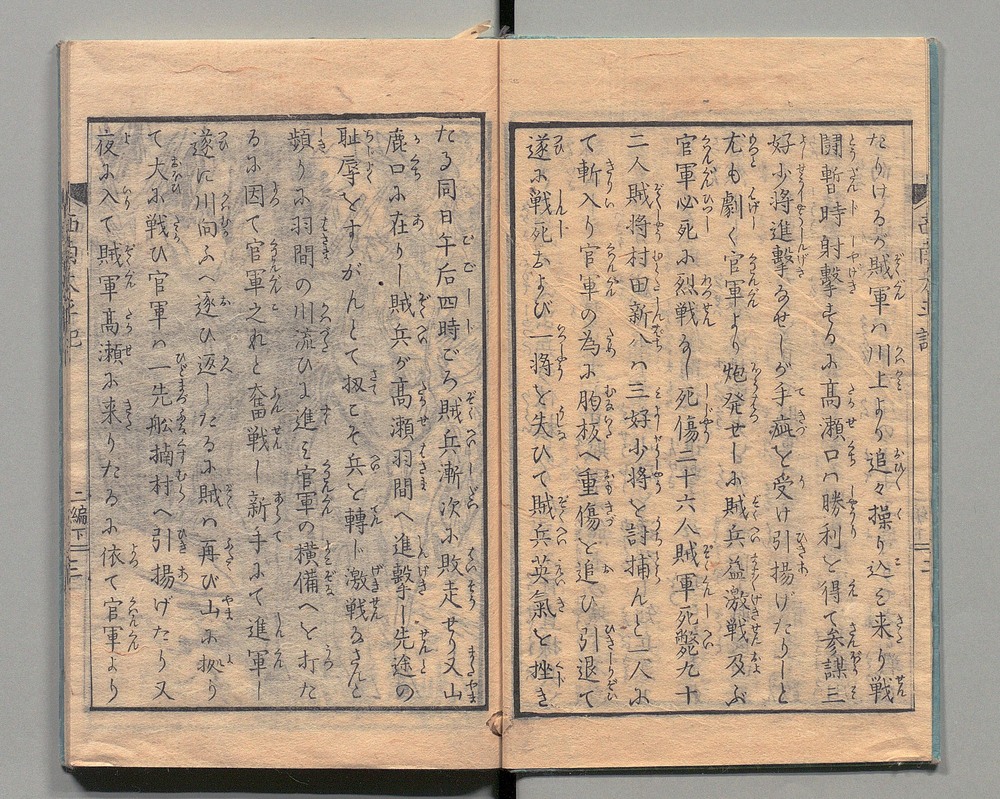 たりけるが賊軍ハ川上より追々操り込ミ来り戦
闘暫時射撃するに髙瀬口ハ勝利を得て参謀三
好少将進撃なせしが手疵を受け引揚げたりしと
尤も劇く官軍より炮発せしに賊兵益激戦及ぶ
官軍必死に烈戦なし死傷二十六人賊軍死斃九十
二人賊将村田新八ハ三好少将を討捕んと一人に
て斬入り官軍の為に胸板へ重傷を追ひ引退て
遂に戦死および一将を失ひて賊兵英氣を挫き
たる同日午后四時ごろ賊兵漸次に敗走せり又山
鹿口に在りし賊兵が髙瀬羽間へ進撃し先途の
耻辱をすゝがんとて扨こそ兵を轉じ激戦なさんと
頻りに羽間の川流ひに進ミ官軍の横備へを打た
るに因て官軍之れと奮戦し新手にて進軍し
遂に川向ふへ逐ひ返したるに賊ハ再び山に扱り
て大に戦ひ官軍ハ一先舩楠村へ引揚げたり又
夜に入て賊軍髙瀬に来りたるに依て官軍より
西南太平記
二編下
三